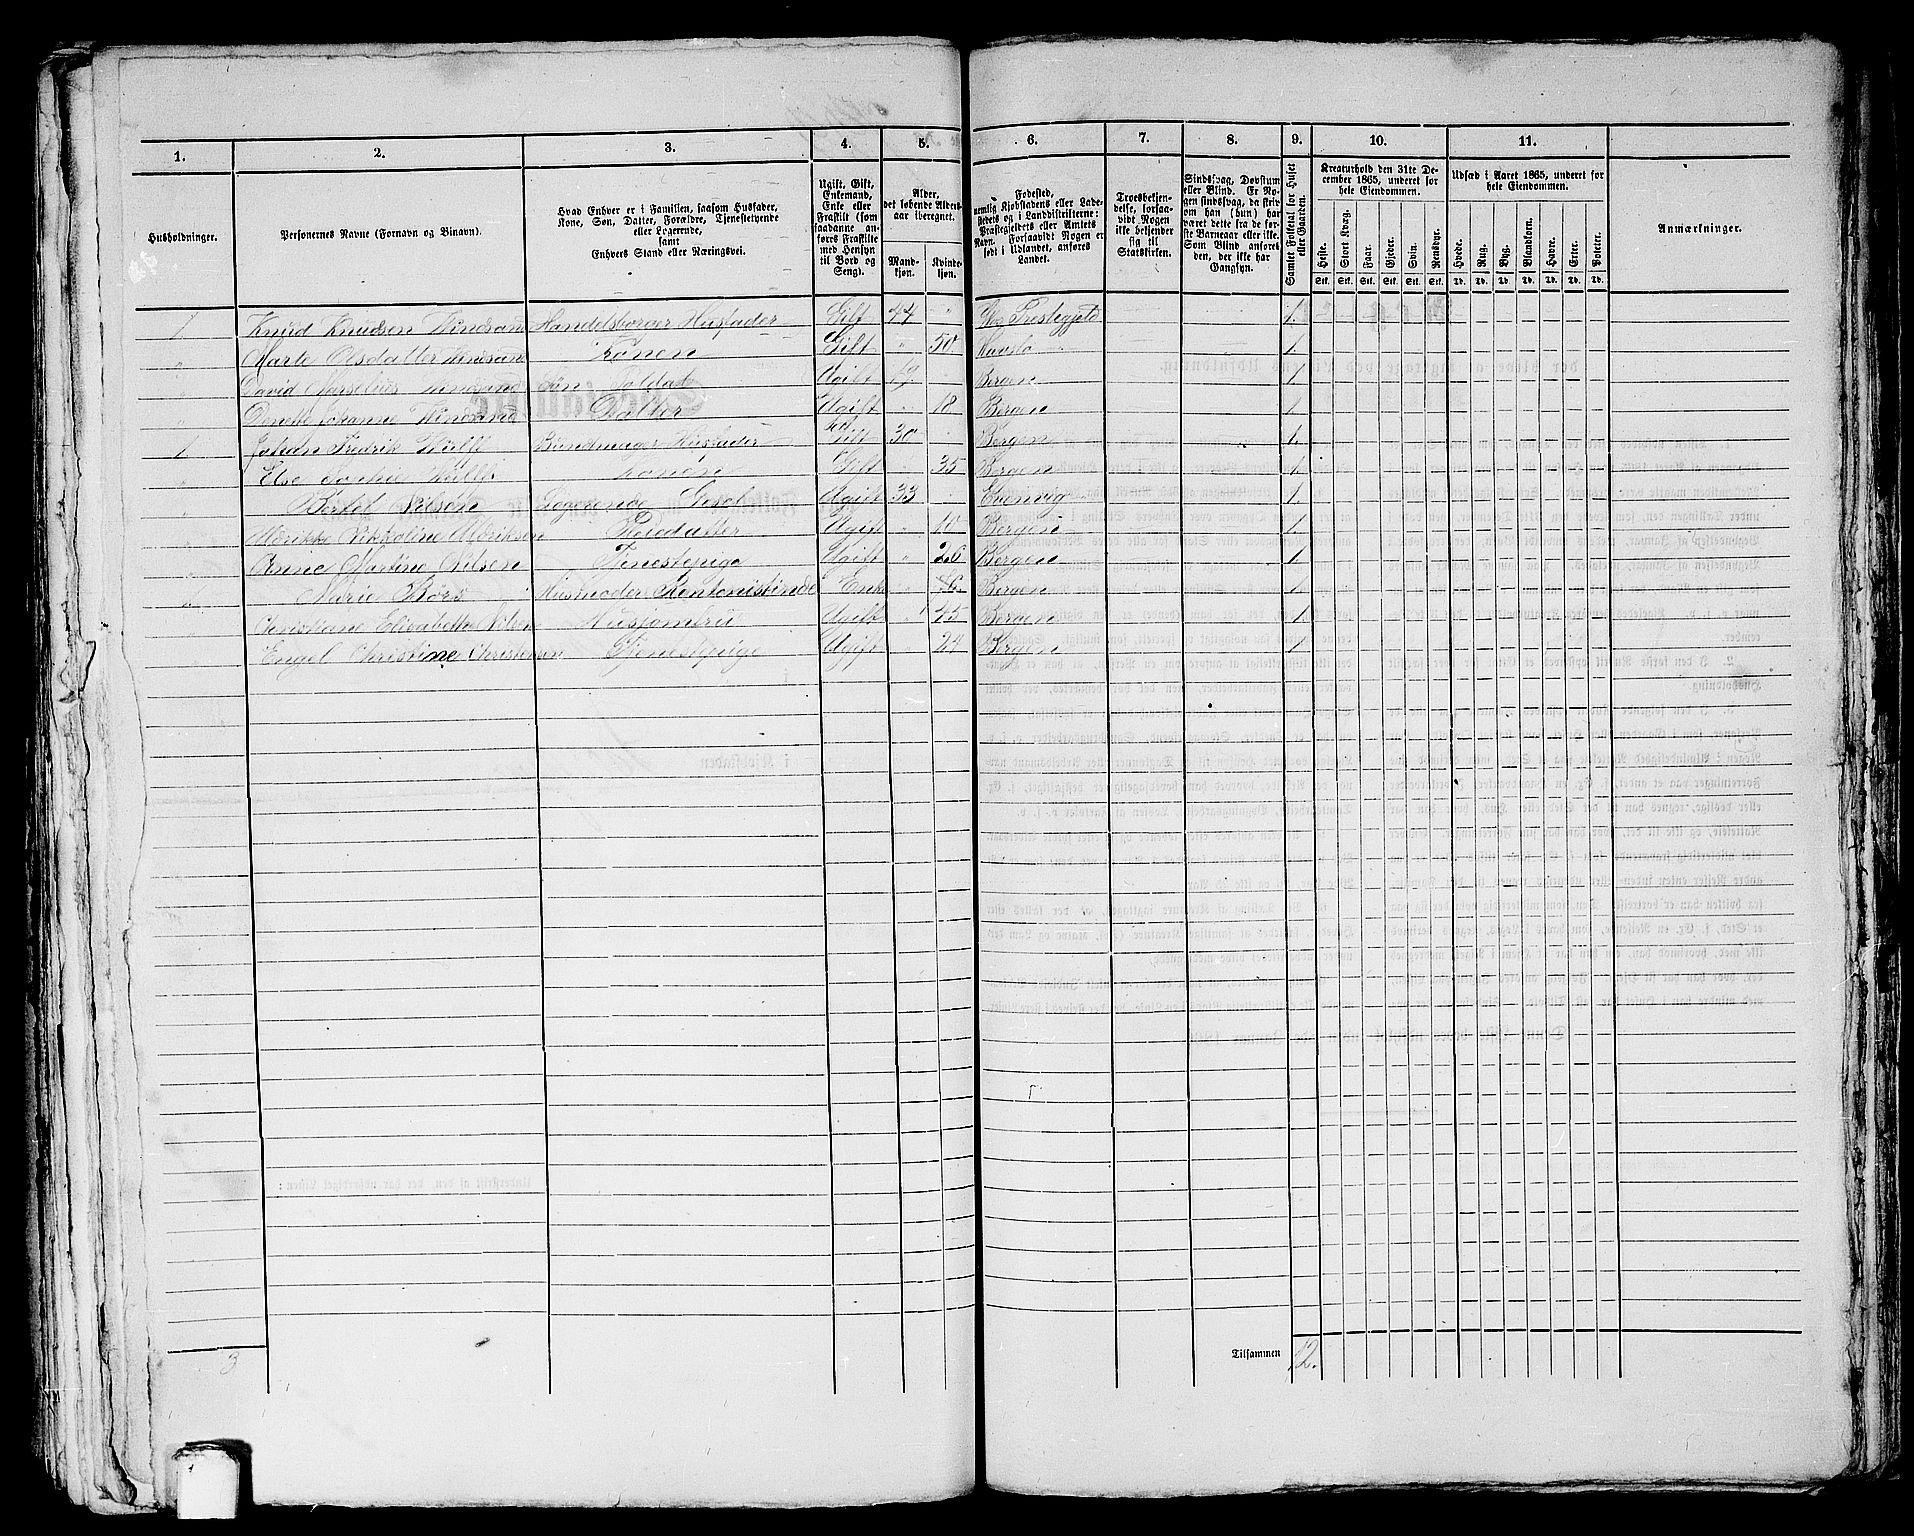 1. 2. 3. 4. 5. 6. 7. 8. 9. 10. 11.
Husholdninger.
Personernes Navne (Fornavn og Binavn).
Hvad Enhver er i Familien, saasom Husfader,
Kone, Søn, Datter, Forældre, Tjenestetyende
eller Logerende,
samt
Enhvers Stand eller Næringsvei.
Ugift, Gift,
Enkemand,
Enke eller
Fraskilt (som
saadanne an-
føres Fraskilte
med Hensyn
til Bord og
Seng).
Alder,
det løbende Alders-
aar iberegnet.
Mand-
kjøn.
Kvinde-
kjøn.
Fødested,
nemlig Kjøbstadens eller Lade-
stedets og i Landdistrikterne:
Præstegjeldets eller Amtets
Navn. Forsaavidt Nogen er
født i Udlandet, anføres
Landet.
Troesbekjen-
delse, forsaa-
vidt Nogen
ikke bekjender
sig til
Statskirken.
Sindssvag, Døvstum
eller Blind. Er No-
gen sindssvag, da skriv
om han (hun) har
været dette fra de før-
ste Barneaar eller ikke.
Som Blind anføres
den, der ikke har
Gangsyn.
Samlet Folketal for Huset
eller Gaarden.
Kreaturhold den 31te De-
cember 1865, underet for
hele Eiendommen.
Heste. Stort Kvæg. Faar. Gjeder. Svin. Rensdyr.
Stk. Stk. Stk. Stk. Stk. Stk.
Udsæd i Aaret 1865, underet for
hele Eiendommen.
Hvede. Rug. Byg. Blandkorn. Havre. Erter. Poteter.
Td. Td. Td. Td. Td. Td. Td.
Anmærkninger.
1 Knud Knudsen Handelsborger Husfader Gift 44 " Præstegjeld 1.
" Marte Olsdatter Konen Gift " 50. 1.
" David Søn Soldat Ugift 19. " Bergen 1
" Johanne Datter Ugift " 18 Bergen 1
1 Johan Fredrik Wulff Bundtmager Husfader Gift 30 " Bergen 1.
" Else Sophie Wulff Konen Gift " 35 Bergen 1.
" Bertel Nilsen Logerende Svend Ugift 33 " Evenvig 1.
" Nikoline Ulriksen Pleiedatter Ugift " 10 Bergen 1
" Anne Martine Nilsen Tjenestepige Ugift " 26 Bergen 1
1 Marie Børs Husmoder Rentenistinde Enke " 76. Bergen 1.
Christiane Elisabeth Nilsen Husjomfru Ugift " 45 Bergen 1.
Engel Christine Christensen Tjenestepige Ugift " 24 Bergen 1
3
Tilsammen 12.